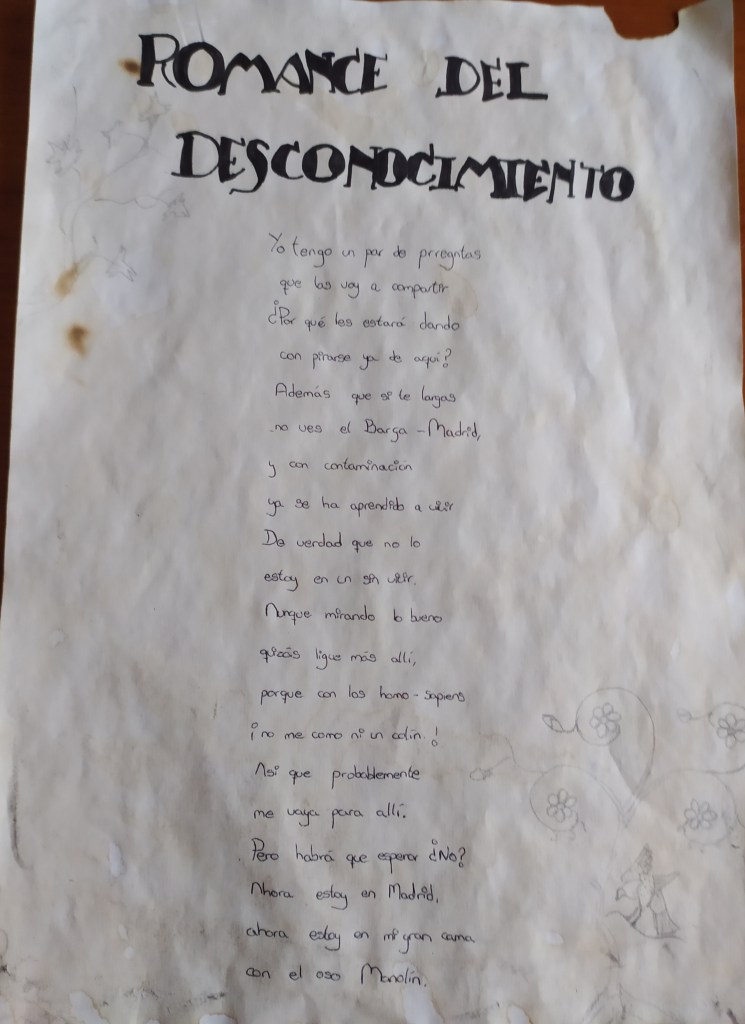 ROMANCE DEL
DESCONOCIMIENTO
Yo tengo un par de prregntas
que las voy a compartir
¿Por qué les estará dando
con pirarse ya de aquí?
Además que si te largas
no ves el Barça-Madrid,
y con contaminación
ya se ha aprendido a vivir
De verdad que no lo
estoy en un sin vivir.
Aunque mirando lo bueno
quizás ligue más allí,
porque con los homo-sapiens
¡no me como ni un colín!
Así que probablemente
me vaya para allí.
Pero habrá que esperar ¿No?
Ahora estoy en Madrid,
ahora estoy en mi gran cama
con el oso Manolín.